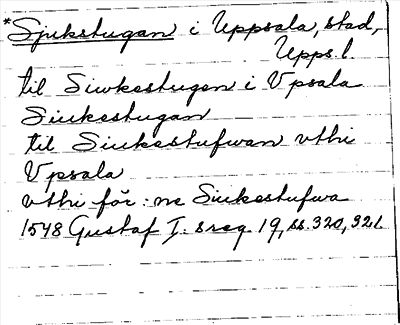 *Sjukstugan i Uppsala, stad,
Upps.l.
til Siwkestugen i Vpsala
Siukestugan
til Siukestufwan vthi
Vpsala
vthi för:ne Siukestufwa
1548 Gustaf I:s reg. 19, ss. 320, 321.